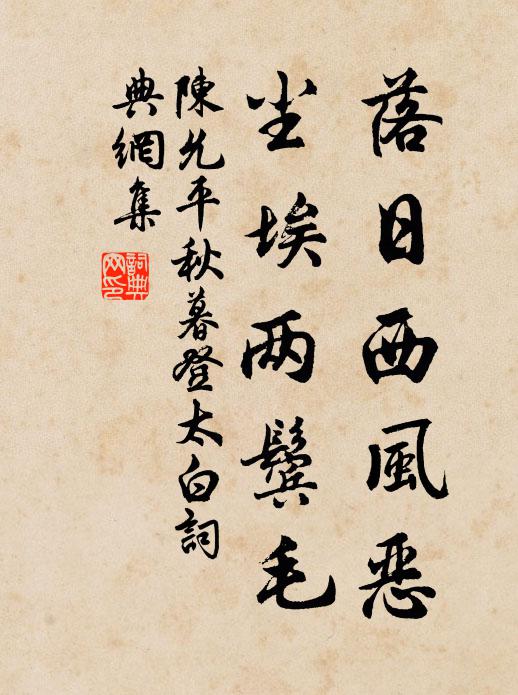 落日西風惡
尘埃两鬓毛
陳允平秋暮登太白詞
典網集
詞典网印